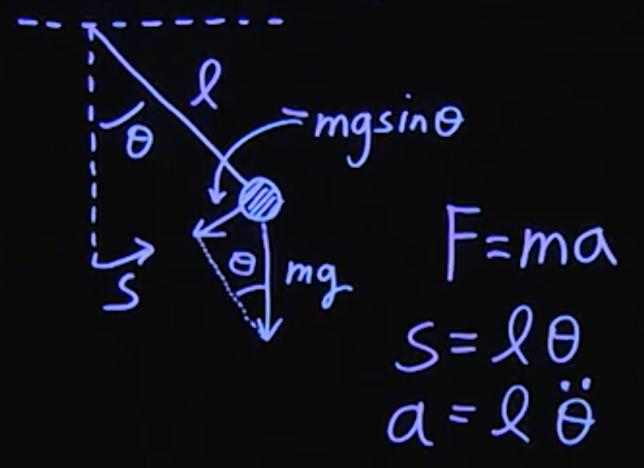 ℓ
-mgsinθ
θ
θ
mg
s
F=ma
s=ℓθ
a=ℓθ̈